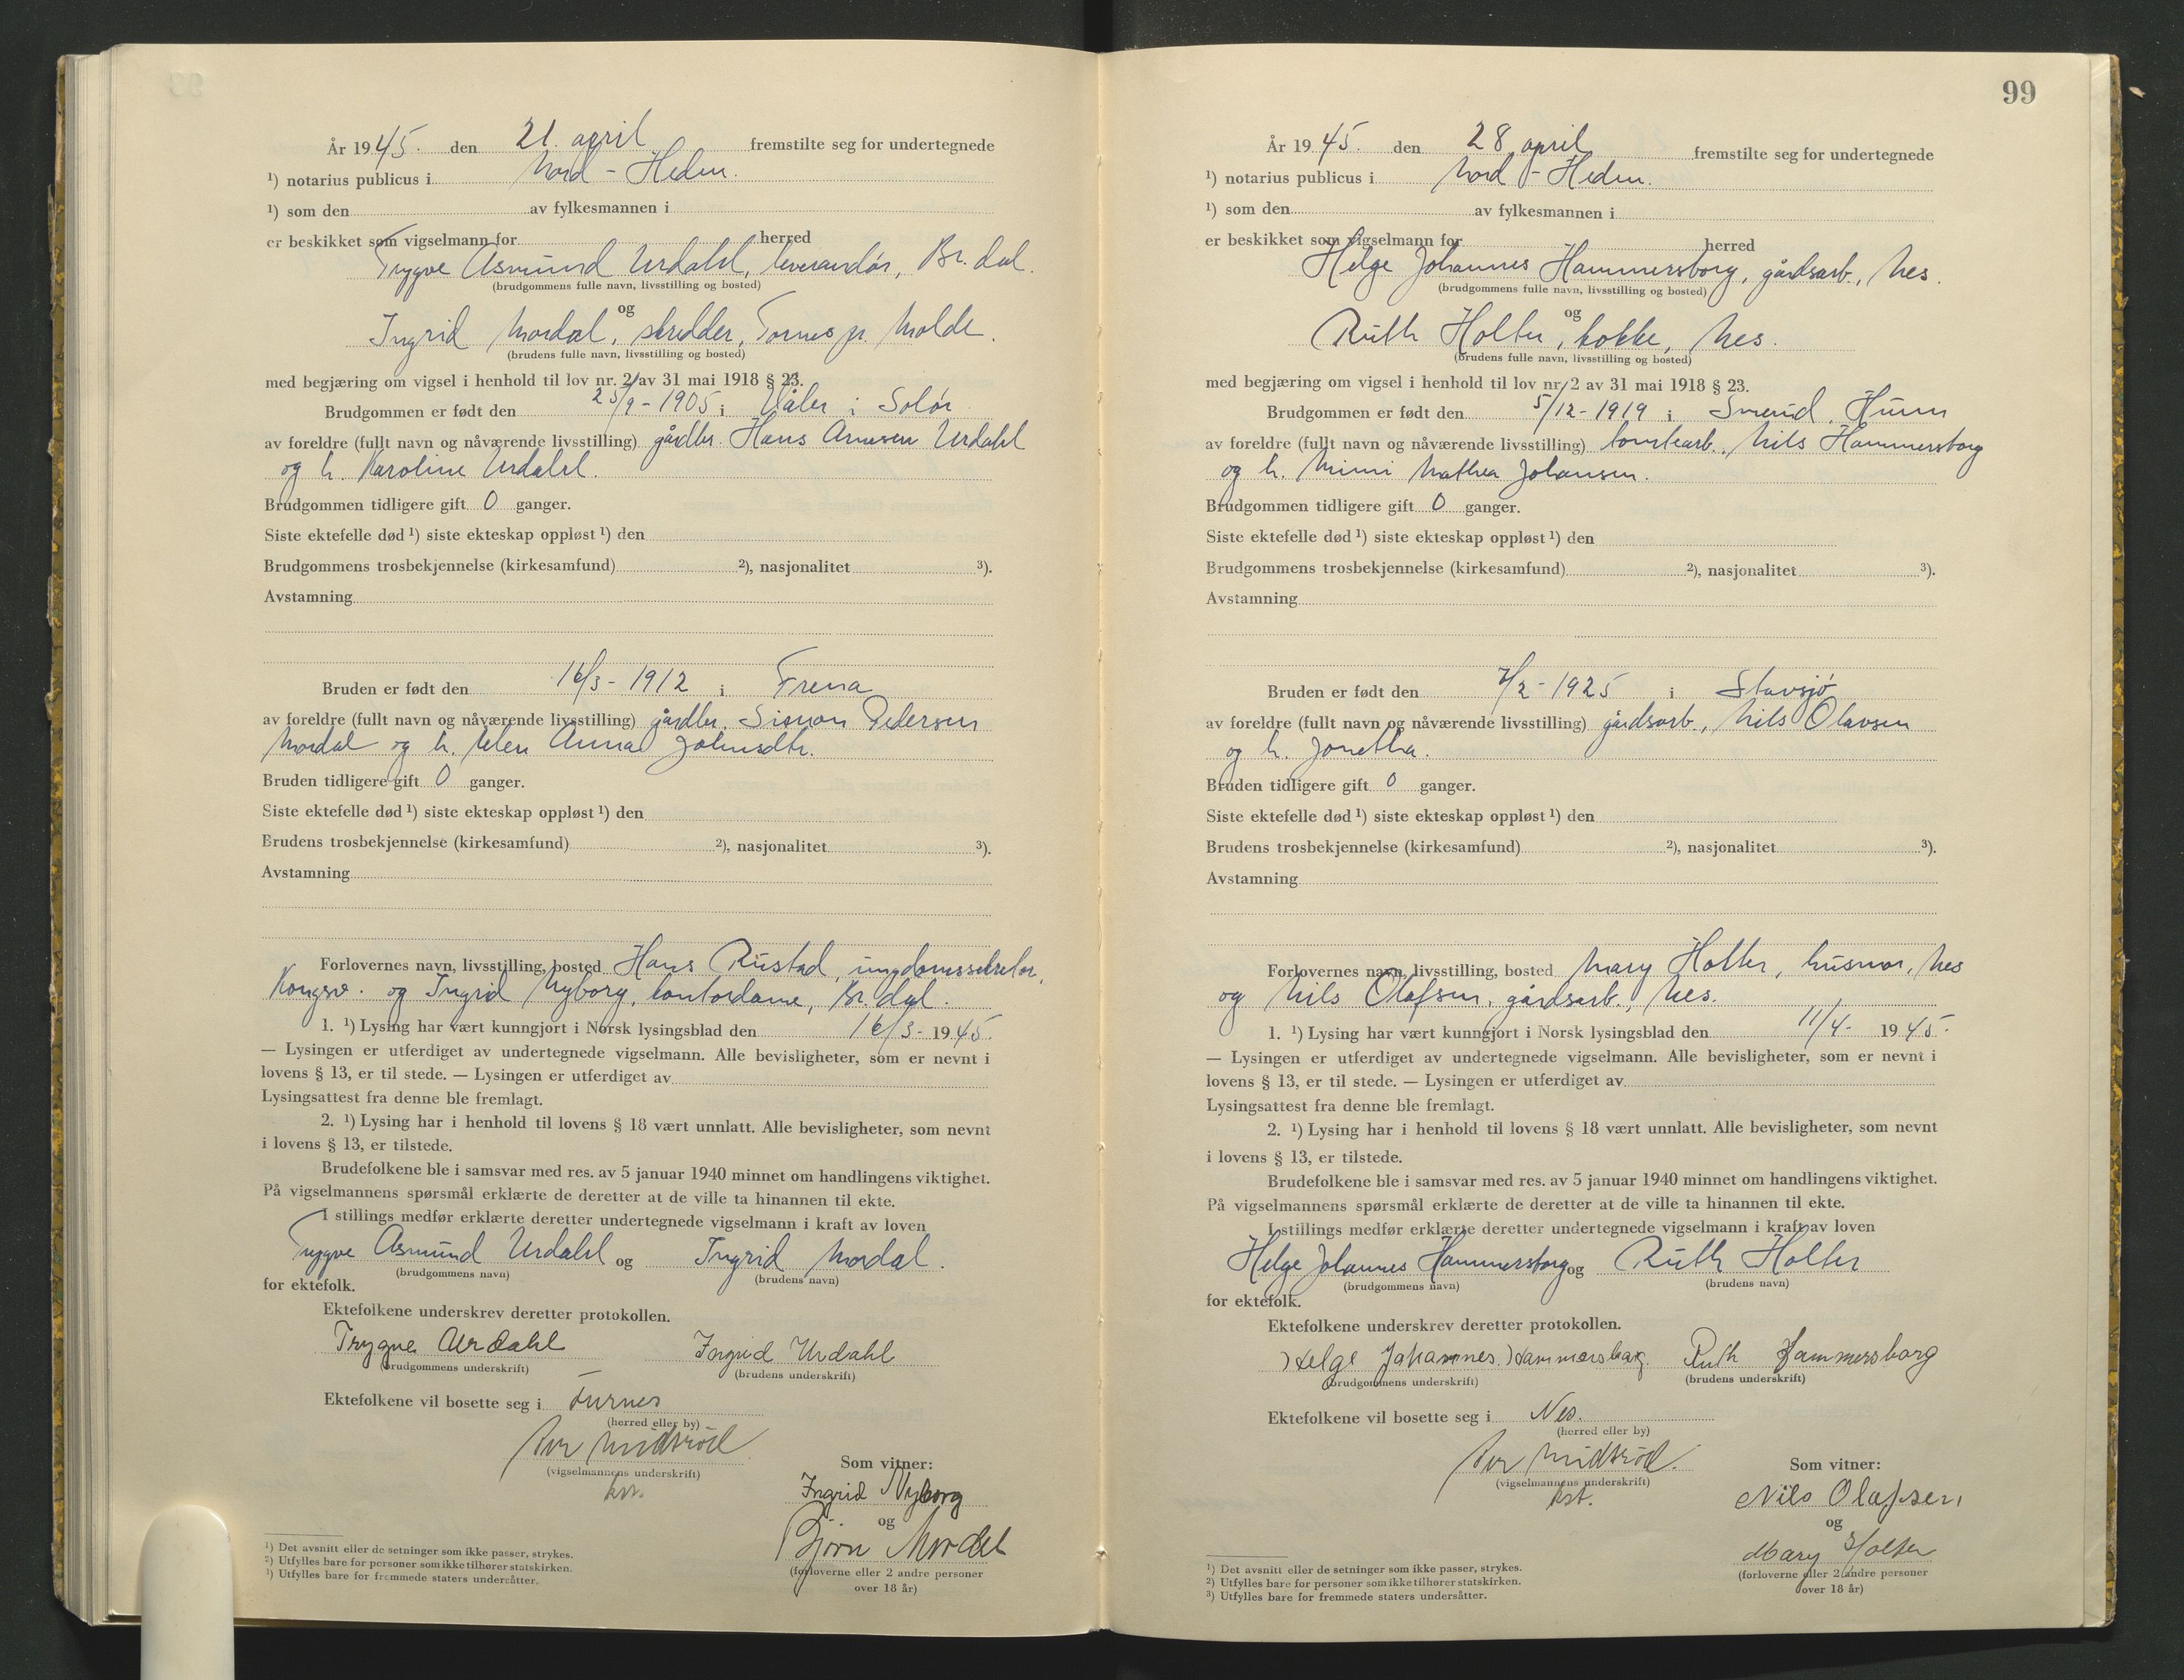 År 1945. den 21. april fremstilte seg for undertegnede
¹) notarius publicus i Nord-Hedm.
¹) som den av fylkesmannen i
er beskikket som vigselmann for herred
Trygve Asmund Urdahl, leverandør, Br.dal.
(brudgommens fulle navn, livsstilling og bosted)
og
Ingrid Mordal, skredder, Tornes pr. Molde.
(brudens fulle navn, livsstilling og bosted)
med begjæring om vigsel i henhold til lov nr. 2 av 31 mai 1918 § 23.
Brudgommen er født den 25/9-1905 i Våler i Solør
av foreldre (fullt navn og nåværende livsstilling) gårdbr. Hans Arnesen Urdahl
og h. Karoline Urdahl.
Brudgommen tidligere gift 0 ganger.
Siste ektefelle død ¹) siste ekteskap oppløst ¹) den
Brudgommens trosbekjennelse (kirkesamfund) ²), nasjonalitet ³).
Avstamning
Bruden er født den 16/3-1912 i Frena
av foreldre (fullt navn og nåværende livsstilling) gårdbr. Simon Pedersen
Mordal og h. Anna Johnsdtr.
Bruden tidligere gift 0 ganger.
Siste ektefelle død ¹) siste ekteskap oppløst ¹) den
Brudens trosbekjennelse (kirkesamfund) ²), nasjonalitet ³).
Avstamning
Forlovernes navn, livsstilling, bosted Hans Rustad, ungdomssekretær,
Kongsv. og Ingrid Nyborg, kontordame, Br.dal.
1. ¹) Lysing har vært kunngjort i Norsk lysingsblad den 16/3-1945.
— Lysingen er utferdiget av undertegnede vigselmann. Alle bevisligheter, som er nevnt i
lovens § 13, er til stede. — Lysingen er utferdiget av
Lysingsattest fra denne ble fremlagt.
2. ¹) Lysing har i henhold til lovens § 18 vært unnlatt. Alle bevisligheter, som nevnt
i lovens § 13, er tilstede.
Brudefolkene ble i samsvar med res. av 5 januar 1940 minnet om handlingens viktighet.
På vigselmannens spørsmål erklærte de deretter at de ville ta hinannen til ekte.
I stillings medfør erklærte deretter undertegnede vigselmann i kraft av loven
Trygve Asmund Urdahl og Ingrid Mordal.
(brudgommens navn) (brudens navn)
for ektefolk.
Ektefolkene underskrev deretter protokollen.
Trygve Urdahl Ingrid Urdahl
(brudgommens underskrift) (brudens underskrift)
Ektefolkene vil bosette seg i Furnes
(herred eller by)
Midsrød
(vigselmannens underskrift)
kst.
Som vitner:
Ingrid Nyborg
og
Bjørn Mordal
(forloverne eller 2 andre personer
over 18 år)
¹) Det avsnitt eller de setninger som ikke passer, strykes.
²) Utfylles bare for personer som ikke tilhører statskirken.
³) Utfylles bare for fremmede staters undersåtter.
99
År 1945. den 28. april fremstilte seg for undertegnede
¹) notarius publicus i Nord-Hedm.
¹) som den av fylkesmannen i
er beskikket som vigselmann for herred
Helge Johannes Hammersborg, gårdsarb., Nes.
(brudgommens fulle navn, livsstilling og bosted)
og
Ruth Holter, kokke, Nes.
(brudens fulle navn, livsstilling og bosted)
med begjæring om vigsel i henhold til lov nr. 2 av 31 mai 1918 § 23.
Brudgommen er født den 5/12-1919 i
av foreldre (fullt navn og nåværende livsstilling) Nils Hammersborg
og h. Mimi Mathea Johansen.
Brudgommen tidligere gift 0 ganger.
Siste ektefelle død ¹) siste ekteskap oppløst ¹) den
Brudgommens trosbekjennelse (kirkesamfund) ²), nasjonalitet ³).
Avstamning
Bruden er født den 7/2-1925 i Stavsjø
av foreldre (fullt navn og nåværende livsstilling) gårdsarb., Nils Olavsen
og h. Jonetha.
Bruden tidligere gift 0 ganger.
Siste ektefelle død ¹) siste ekteskap oppløst ¹) den
Brudens trosbekjennelse (kirkesamfund) ²), nasjonalitet ³).
Avstamning
Forlovernes navn, livsstilling, bosted Mary Holter, husmor, Nes
og Nils Olafsen, gårdsarb., Nes.
1. ¹) Lysing har vært kunngjort i Norsk lysingsblad den 11/4-1945.
— Lysingen er utferdiget av undertegnede vigselmann. Alle bevisligheter, som er nevnt i
lovens § 13, er til stede. — Lysingen er utferdiget av
Lysingsattest fra denne ble fremlagt.
2. ¹) Lysing har i henhold til lovens § 18 vært unnlatt. Alle bevisligheter, som nevnt
i lovens § 13, er tilstede.
Brudefolkene ble i samsvar med res. av 5 januar 1940 minnet om handlingens viktighet.
På vigselmannens spørsmål erklærte de deretter at de ville ta hinannen til ekte.
I stillings medfør erklærte deretter undertegnede vigselmann i kraft av loven
Helge Johannes Hammersborg og Ruth Holter
(brudgommens navn) (brudens navn)
for ektefolk.
Ektefolkene underskrev deretter protokollen.
Helge Johannes Hammersborg. Ruth Hammersborg
(brudgommens underskrift) (brudens underskrift)
Ektefolkene vil bosette seg i Nes.
(herred eller by)
Midsrød.
(vigselmannens underskrift)
kst.
Som vitner:
Nils Olafsen,
og
Mary Holter
(forloverne eller 2 andre personer
over 18 år)
¹) Det avsnitt eller de setninger som ikke passer, strykes.
²) Utfylles bare for personer som ikke tilhører statskirken.
³) Utfylles bare for fremmede staters undersåtter.